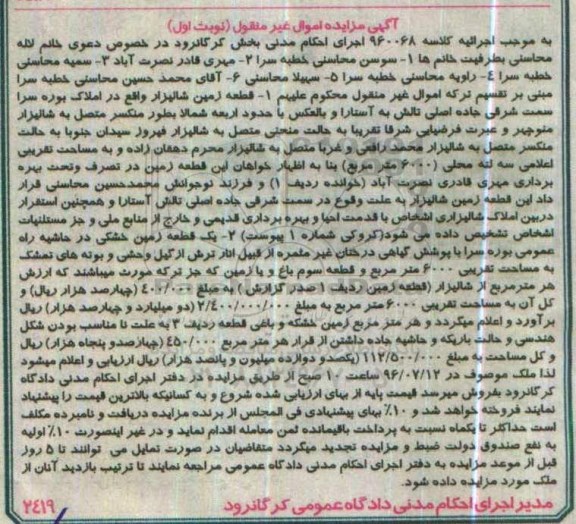 آگهی مزایده اموال غیر منقول (نوبت اول)
به موجب اجرائیه کلاسه ۹۶۰۰۶۸ اجرای احکام مدنی بخش کرگانرود در خصوص دعوی خانم لاله
محاسنی بطرفیت خانم ها ۱- سوسن محاسنی خطبه سرا ۲- مهری قادر نصرت آباد ۳- سمیه محاسنی
خطبه سرا ٤- راویه محاسنی خطبه سرا ۵- سهیلا محاسنی ۶- آقای محمد حسین محاسنی خطبه سرا
مبنی بر تقسیم ترکه اموال غیر منقول محکوم علیهم ۱- قطعه زمین شالیزار واقع در املاک بوره سرا
سمت شرقی جاده اصلی تالش به آستارا و بالعکس با حدود اربعه شمالا بطور منکسر متصل به شالیزار
منوچهر و عبرت فرضیایی شرقا تقریبا به حالت منحنی متصل به شالیزار فیروز سیدان جنوبا به حالت
منکسر متصل به شالیزار محمد رافعی و غربا متصل به شالیزار محرم دهقان زاده و به مساحت تقریبی
اعلامی سه لته محلی (۶۰۰۰ متر مربع) بنا به اظهار خواهان این قطعه زمین در تصرف وتحت بهره
برداری مهری قادری نصرت آباد (خوانده ردیف ۱) و فرزند نوجوانش محمدحسین محاسنی قرار
داد این قطعه زمین شالیزار به علت وقوع در سمت شرقی جاده اصلی تالش آستارا و همچنین استقرار
دربین املاک شالیزاری اشخاص با قدمت احیا و بهره برداری قدیمی و خارج از منابع ملی و جز مستثنیات
اشخاص تشخیص داده می شود(کروکی شماره ۱ پیوست) ۲- یک قطعه زمین خشکی در حاشیه راه
عمومی بوره سرا با پوشش گیاهی درختان غیر مثمره از قبیل انار ترش ازگیل وحشی و بوته های تمشک
به مساحت تقریبی ۶۰۰۰ متر مربع و قطعه سوم باغ و یا زمین که جز ترکه مورث میباشند که ارزش
هر مترمربع از شالیزار (قطعه زمین ردیف ۱ صدر گزارش ) به مبلغ ۴۰۰/۰۰۰ (چهارصد هزار ریال) و
کل آن به مساحت تقریبی ۶۰۰۰ متر مربع به مبلغ ۲/٤۰۰/۰۰۰/۰۰۰ (دو میلیارد و چهارصد هزار) ریال
برآورد و اعلام میگردد و هر متر مربع زمین خشکه و باغی قطعه ردیف ۳ به علت نا مناسب بودن شکل
هندسی و حالت باریکه و حاشیه جاده داشتن از قرار هر متر مربع ٤۵۰/۰۰۰ (چهارصدو پنجاه هزار) ریال
و کل مساحت به مبلغ ۱۱۲/۵۰۰/۰۰۰ (یکصدو دوازده میلیون و پانصد هزار) ریال ارزیابی و اعلام میشود
لذا ملک موصوف در ۹۶/۰۷/۱۲ ساعت ۱۰ صبح از طریق مزایده در دفتر اجرای احکام مدنی دادگاه
کرگانرود بفروش میرسد قیمت پایه از بهای ارزیابی شده شروع و به کسانیکه بالاترین قیمت را پیشنهاد
نمایند فروخته خواهد شد و ۱۰٪ بهای پیشنهادی فی المجلس از برنده مزایده دریافت و نامبرده مکلف
است حداکثر تا یکماه نسبت به پرداخت باقیمانده ثمن معامله اقدام نماید و در غیر اینصورت ۱۰٪ اولیه
به نفع صندوق دولت ضبط و مزایده تجدید میگردد متقاضیان در صورت تمایل می توانند تا ۵ روز
قبل از موعد مزایده به دفتر اجرای احکام مدنی دادگاه عمومی مراجعه نمایند تا ترتیب بازدید آنان از
ملک مورد مزایده داده شود.
مدیر اجرای احکام مدنی دادگاه عمومی کرگانرود
۲٤۱۹